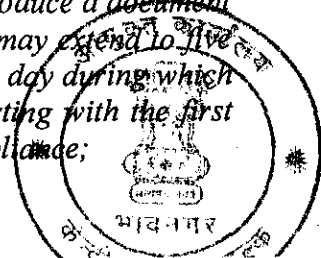 roduce a document
may extend to five
day during which
rting with the first
pliance;
भावनगर